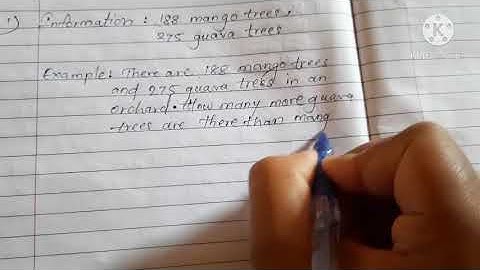 1) Information : 188 mango trees,
275 guava trees
Example: There are 188 mango trees
and 275 guava trees in an
orchard. How many more guava
trees are there than mang